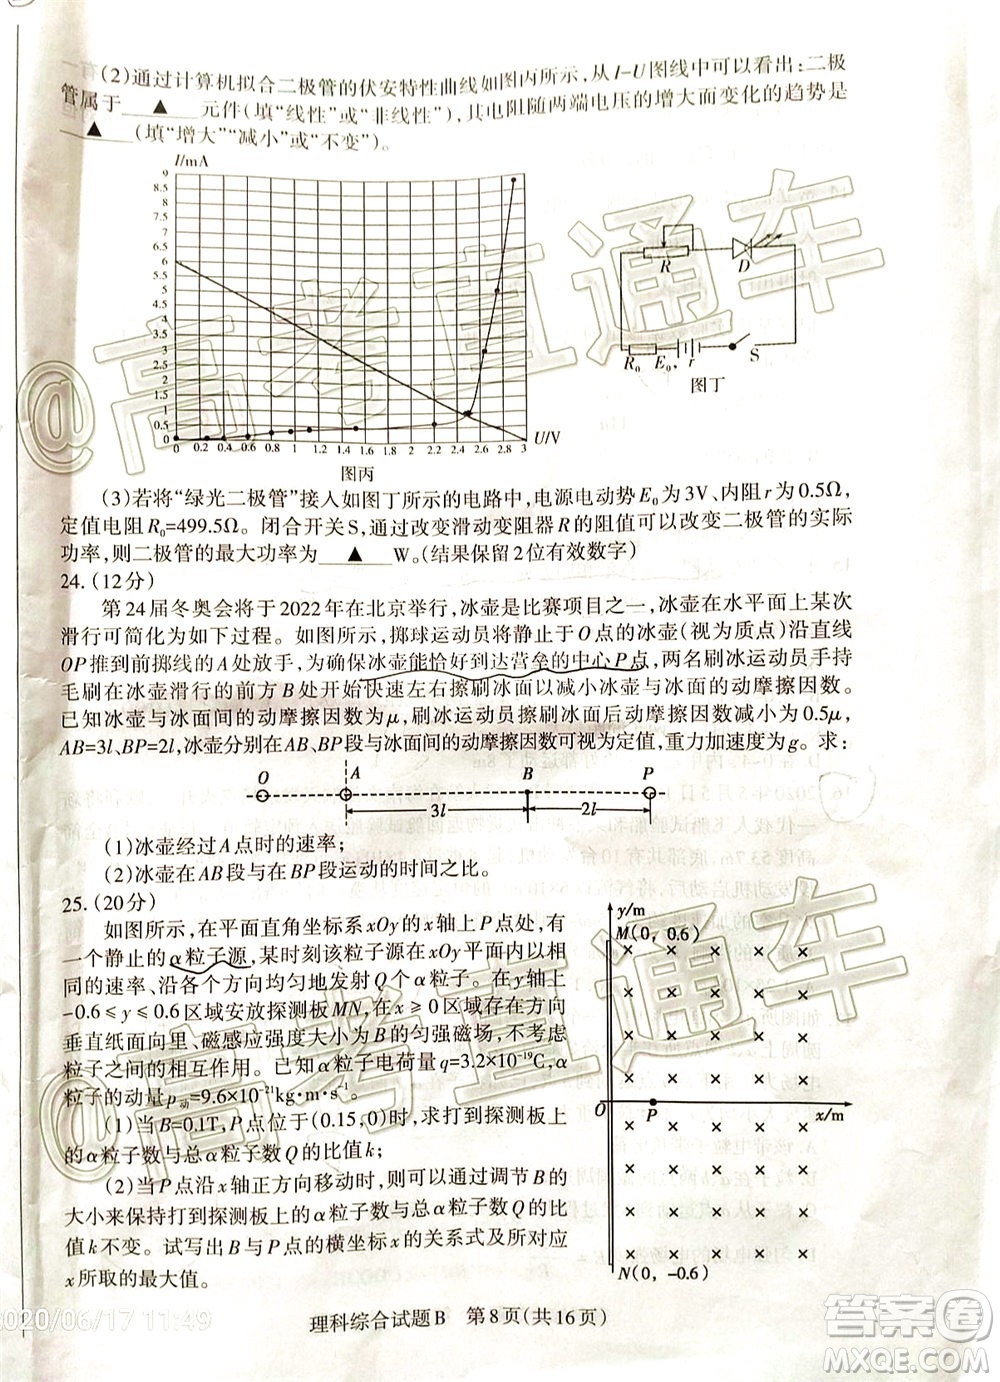 (2)通过计算机拟合二极管的伏安特性曲线如图丙所示,从I-U图线中可以看出:二极
管属于 ▲ 元件(填“线性”或“非线性”),其电阻随两端电压的增大而变化的趋势是
▲ (填“增大”“减小”或“不变”)。
I/mA
9
8.5
8
7.5
7
6.5
6
5.5
5
4.5
4
3.5
3
2.5
2
1.5
1
0.5
0
0 0.2 0.4 0.6 0.8 1 1.2 1.4 1.6 1.8 2 2.2 2.4 2.6 2.8 3
U/V
图丙
R D
R₀ E₀, r S
图丁
(3)若将“绿光二极管”接入如图丁所示的电路中,电源电动势E₀为3V、内阻r为0.5Ω,
定值电阻R₀=499.5Ω。闭合开关S,通过改变滑动变阻器R的阻值可以改变二极管的实际
功率,则二极管的最大功率为 ▲ W。(结果保留2位有效数字)
24.(12分)
第24届冬奥会将于2022年在北京举行,冰壶是比赛项目之一,冰壶在水平面上某次
滑行可简化为如下过程。如图所示,掷球运动员将静止于O点的冰壶(视为质点)沿直线
OP推到前掷线的A处放手,为确保冰壶能恰好到达营垒的中心P点,两名刷冰运动员手持
毛刷在冰壶滑行的前方B处开始快速左右擦刷冰面以减小冰壶与冰面的动摩擦因数。
已知冰壶与冰面间的动摩擦因数为μ,刷冰运动员擦刷冰面后动摩擦因数减小为0.5μ,
AB=3l,BP=2l,冰壶分别在AB、BP段与冰面间的动摩擦因数可视为定值,重力加速度为g。求:
O A B P
3l 2l
(1)冰壶经过A点时的速率;
(2)冰壶在AB段与在BP段运动的时间之比。
25.(20分)
如图所示,在平面直角坐标系xOy的x轴上P点处,有
一个静止的α粒子源,某时刻该粒子源在xOy平面内以相
同的速率、沿各个方向均匀地发射Q个α粒子。在y轴上
-0.6≤y≤0.6区域安放探测板MN,在x≥0区域存在方向
垂直纸面向里、磁感应强度大小为B的匀强磁场,不考虑粒
子之间的相互作用。已知α粒子电荷量q=3.2×10⁻¹⁹C,α粒
子的动量p动=9.6×10⁻²¹kg·m·s⁻¹。
(1)当B=0.1T,P点位于(0.15,0)时,求打到探测板上
的α粒子数与总α粒子数Q的比值k;
(2)当P点沿x轴正方向移动时,则可以通过调节B的
大小来保持打到探测板上的α粒子数与总α粒子数Q的比
值k不变。试写出B与P点的横坐标x的关系式及所对应
x所取的最大值。
y/m
M(0, 0.6)
O P x/m
N(0, -0.6)
理科综合试题B 第8页(共16页)
2020/06/17 11:49
@高考直通车
@高考直通车
答案圈
MXQE.COM